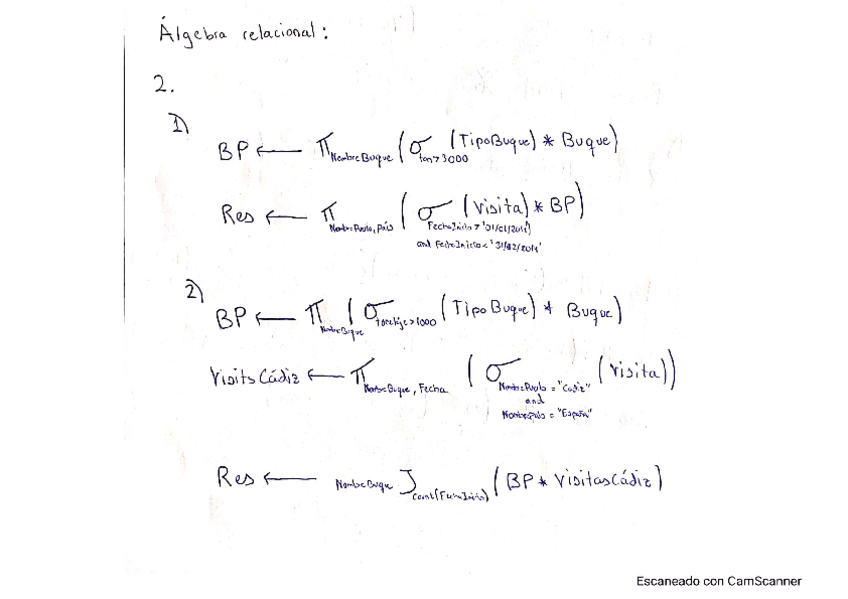 Álgebra relacional:
2.
1)
BP ← π NombreBuque (σ ton>3000 (TipoBuque) * Buque)
Res ← π NombrePuerto, País (σ (Visita) * BP)
FechaInicio > '01/01/2014'
and FechaInicio < '31/12/2014'
2)
BP ← π NombreBuque (σ tonelaje>1000 (TipoBuque) * Buque)
VisitsCádiz ← π NombreBuque, Fecha (σ (Visita))
NombrePuerto = "Cadiz"
and
NombrePais = "España"
Res ← NombreBuque J count(FechaInicio) (BP * VisitasCádiz)
Escaneado con CamScanner